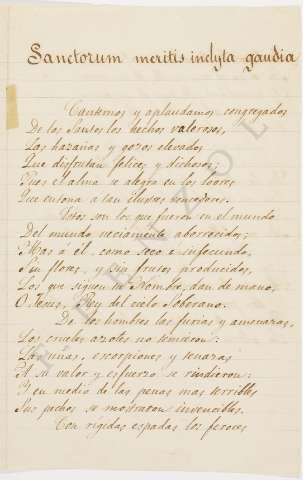 Sanctorum meritis inclyta gaudia
Cantemos y aplaudamos congregados
De los Santos los hechos valerosos,
Las hazañas y gozos elevados
Que disfrutan felices y dichosos;
Pues el alma se alegra en los loores
Que entona a tan ilustres vencedores.
Estos son los que fueron en el mundo
Del mundo neciamente aborrecidos;
Mas á él, como seco é infecundo,
Sin flores, y sin frutos producidos,
Los que siguen tu Nombre, dan de mano,
O Jesus, Rey del cielo Soberano.
De los hombres las furias y amenazas,
Los crueles azotes no temieron:
Las uñas, escorpiones y tenazas
A su valor y esfuerzo se rindieron:
Y en medio de las penas mas terribles
Sus pechos se mostraron invencibles.
Con rígidas espadas los feroces